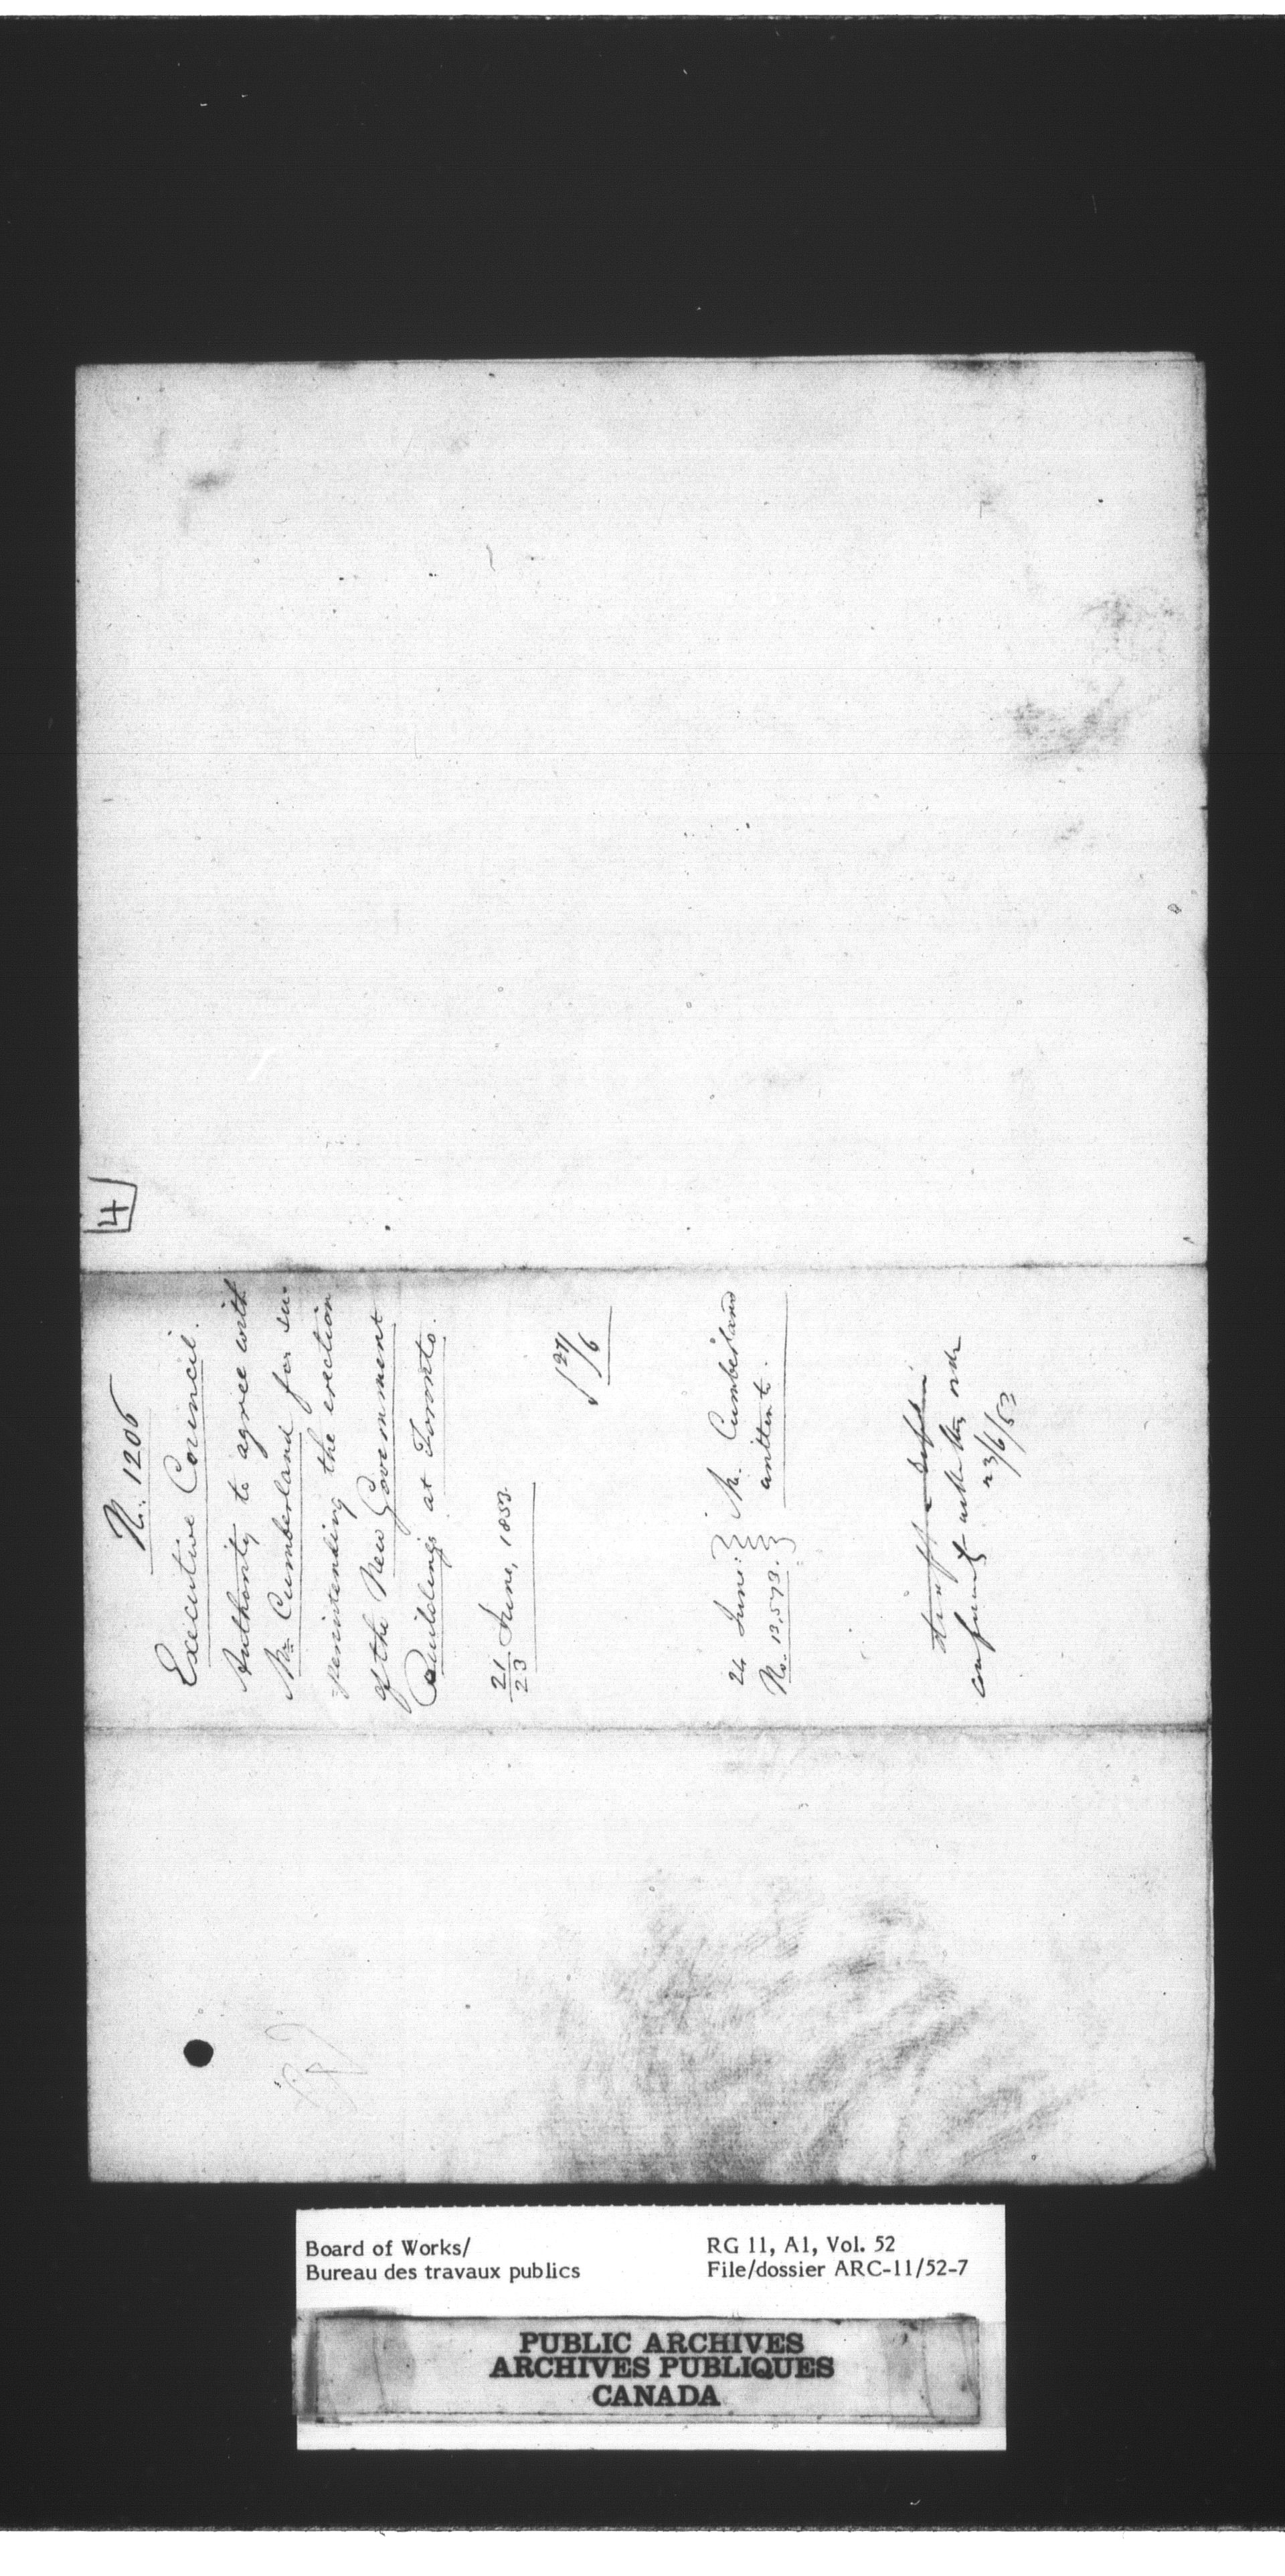 4
No. 1206
Executive Council.
Authority to agree with
Mr Cumberland for su-
perintending the erection
of the New Government
Buildings at Toronto.
21/23 June, 1853.
27/6
24 June.
No. 13,573.
Mr. Cumberland
written to.
order
23/6/53
Board of Works/
Bureau des travaux publics
RG 11, A1, Vol. 52
File/dossier ARC-11/52-7
PUBLIC ARCHIVES
ARCHIVES PUBLIQUES
CANADA